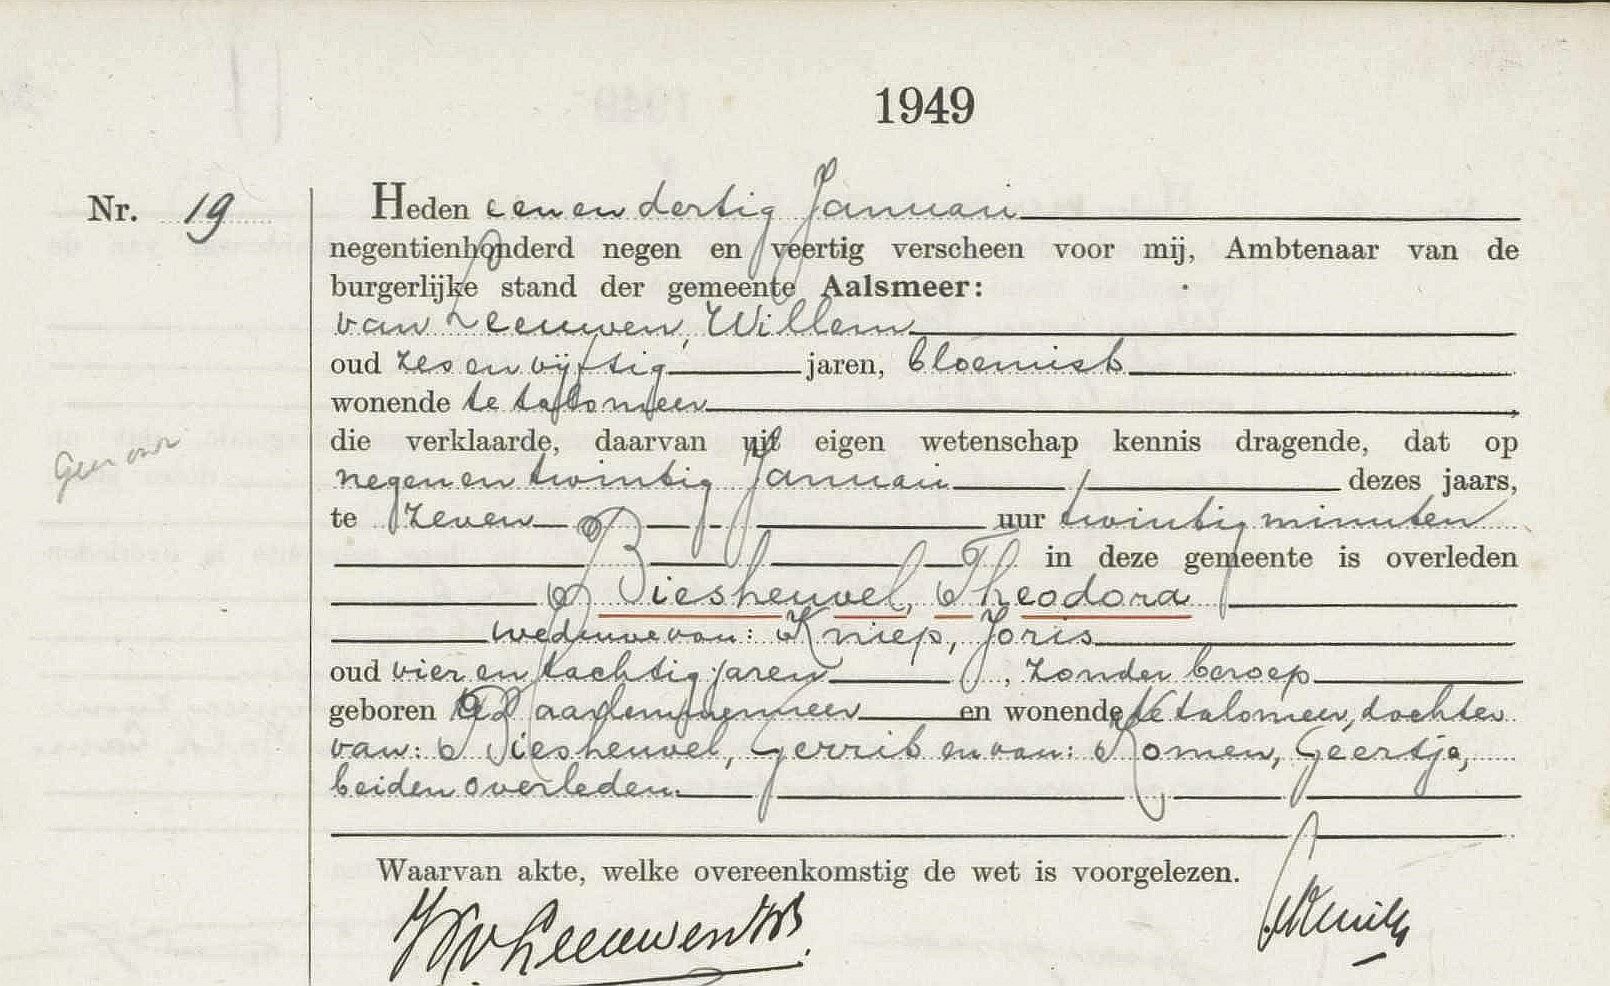 1949
Nr. 19
Heden een en dertig Januari
negentienhonderd negen en veertig verscheen voor mij, Ambtenaar van de
burgerlijke stand der gemeente Aalsmeer:
van Leeuwen, Willem
oud zes en vijftig jaren, bloemist
wonende te Aalsmeer
die verklaarde, daarvan uit eigen wetenschap kennis dragende, dat op
negen en twintig Januari dezes jaars,
te zeven uur twintig minuten
in deze gemeente is overleden
Biesheuvel, Theodora
weduwe van: Kniep, Joris
oud vier en tachtig jaren, zonder beroep
geboren Haarlemmermeer en wonende te Aalsmeer, dochter
van: Biesheuvel, Gerrit en van: Romen, Geertje,
beiden overleden.
Waarvan akte, welke overeenkomstig de wet is voorgelezen.
W v Leeuwen